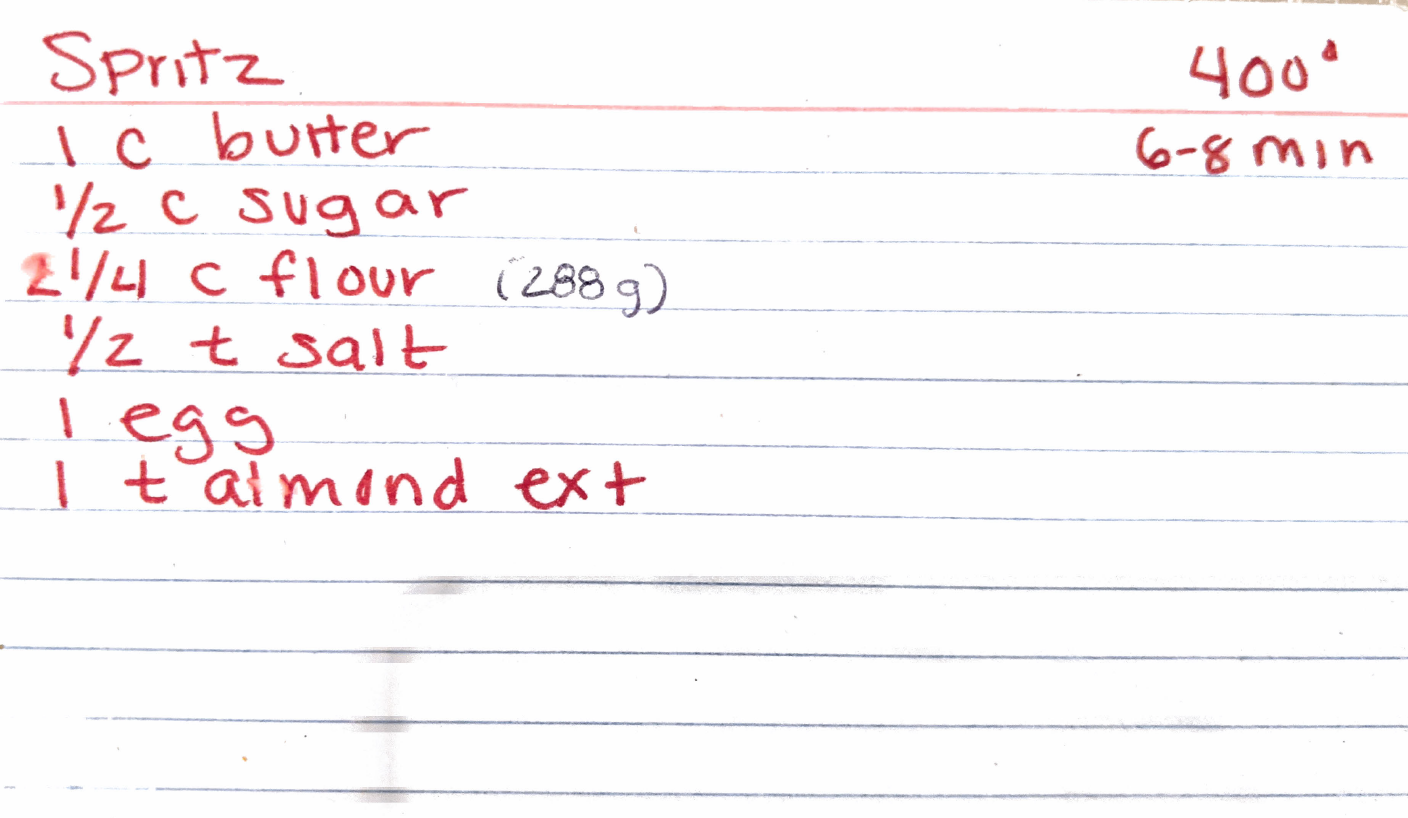 Spritz 400°
1 c butter 6-8 min
1/2 c sugar
2 1/4 c flour (288g)
1/2 t salt
1 egg
1 t almond ext